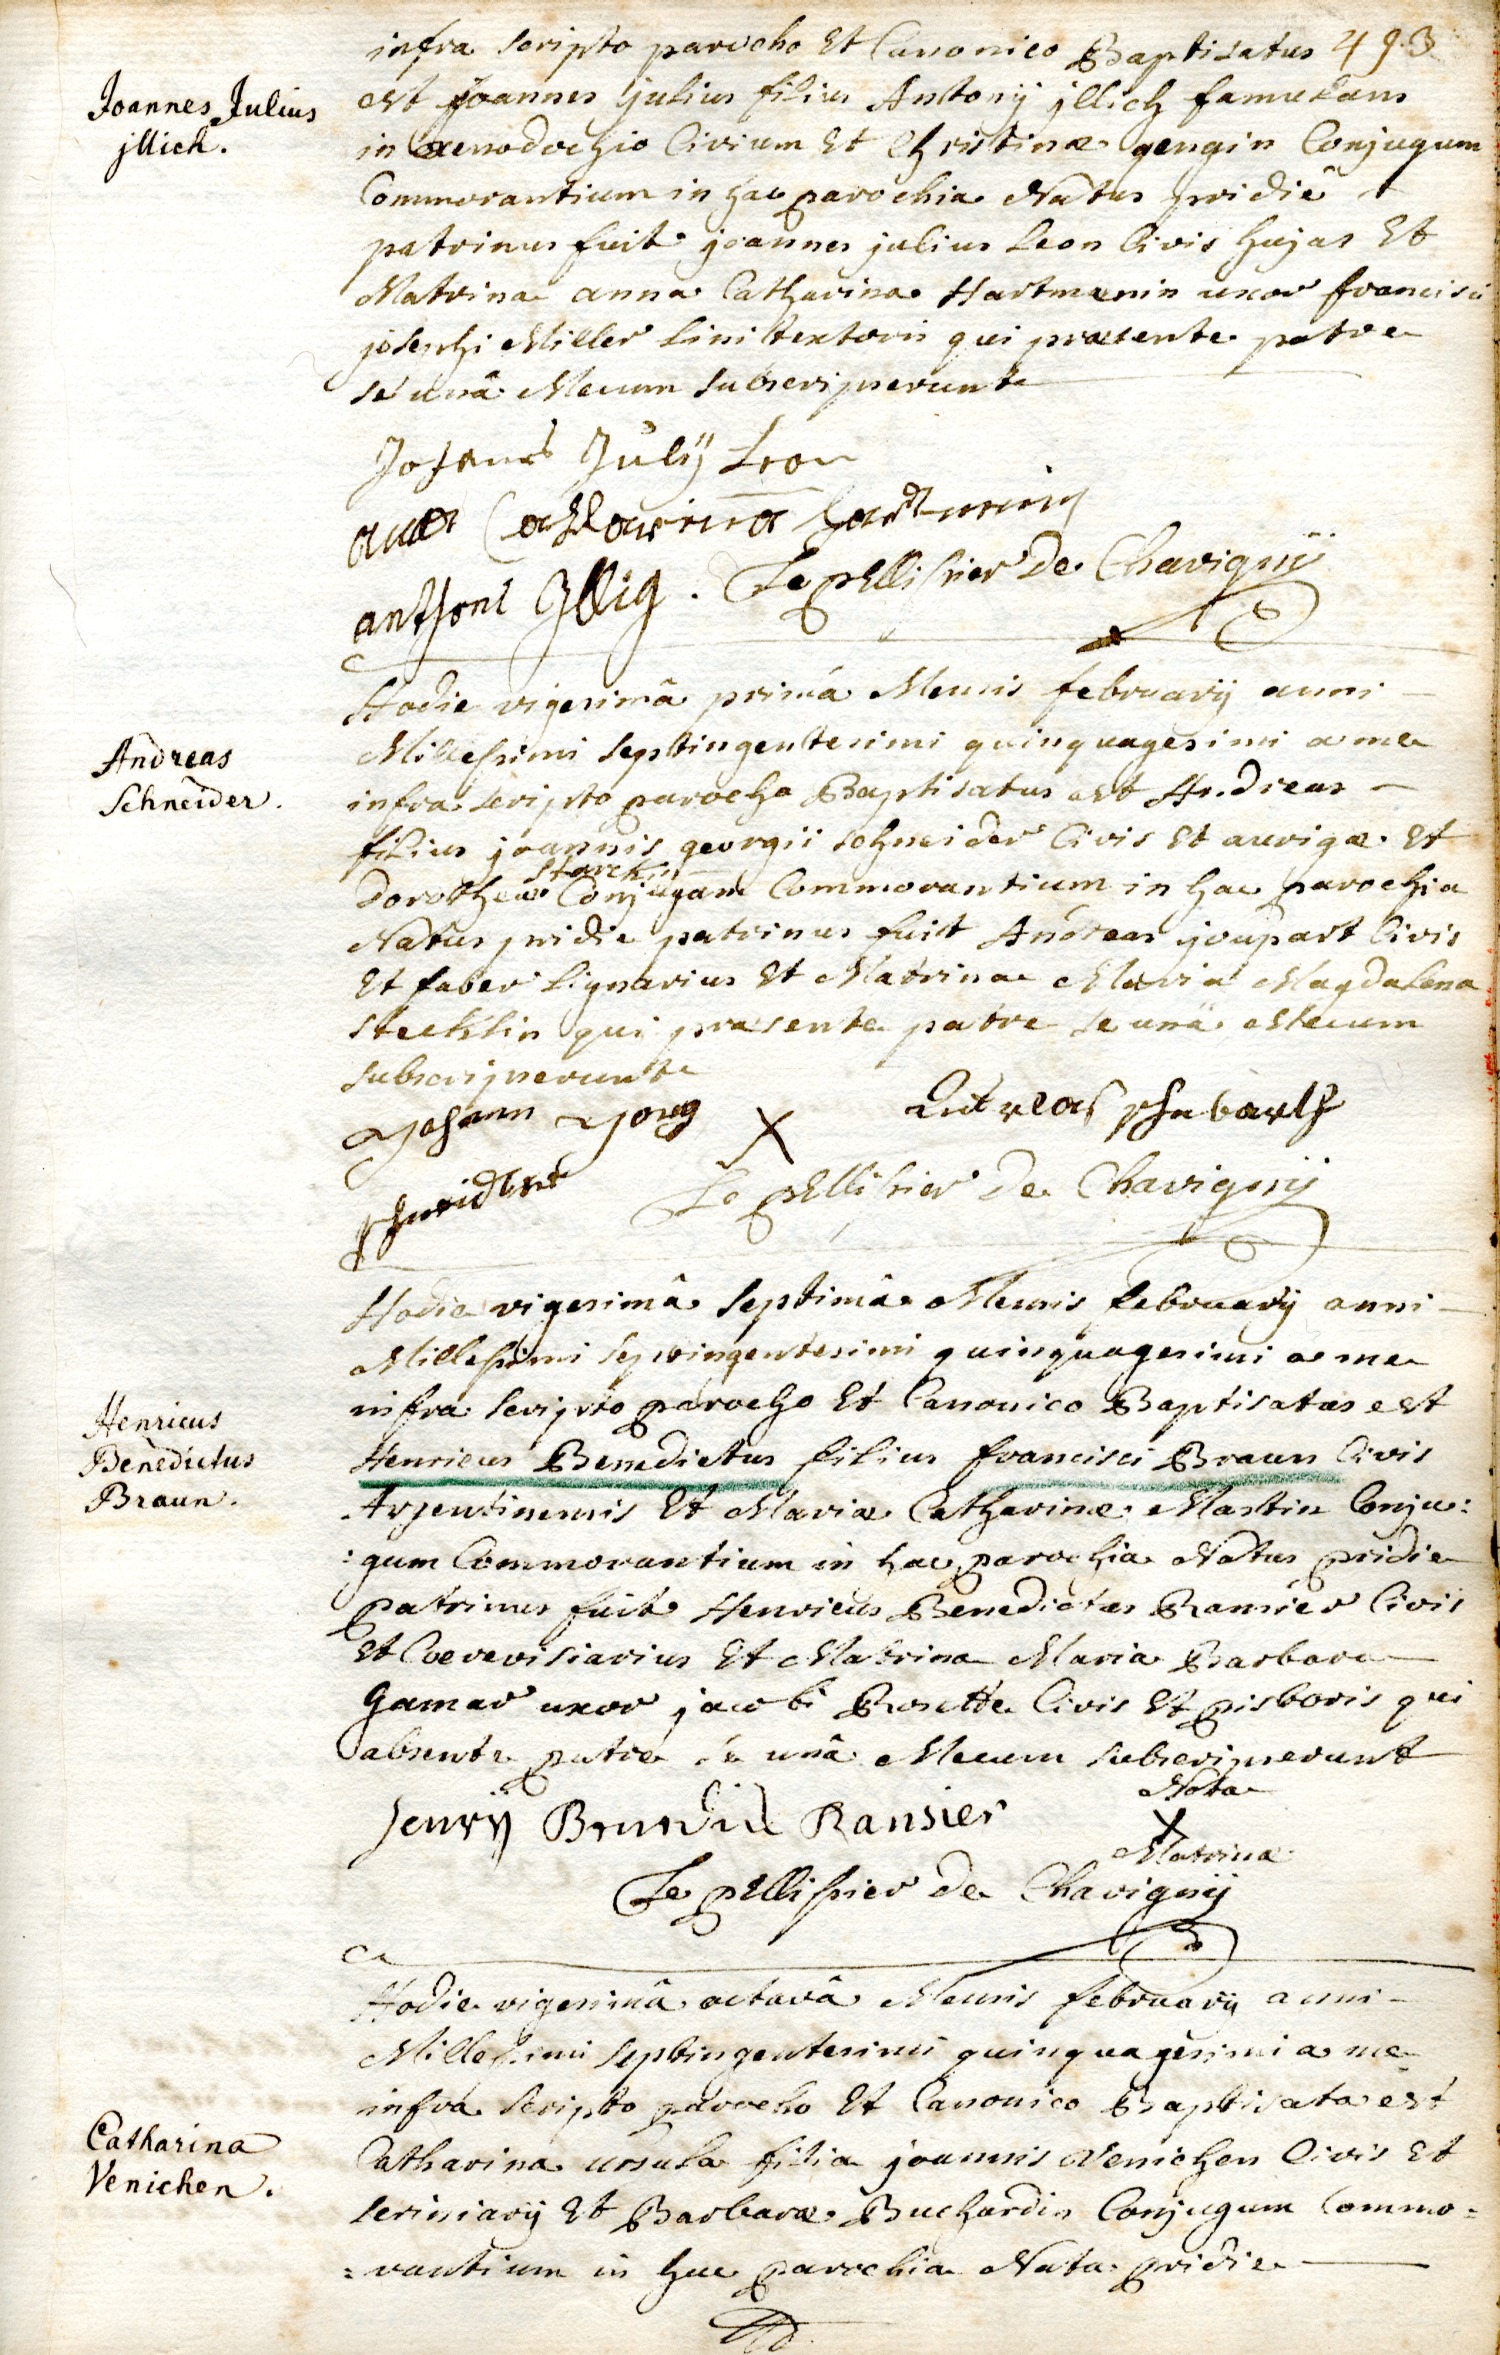 infra scripto parocho Et Canonico Baptisatus 493
Joannes Julius
jllich.
est Joannes julius filius Antonij jllich famulans
in Xenodochio Civium Et Christinæ gengin Conjugum
Commorantium in hac parochia Natus pridiê
patrinus fuit joannes julius Leon Civis hujas Et
Matrina anna Catharina Hartmenin uxor francisci
josephi Miller Linitextoris qui præsente patre
se unâ Mecum subscripserunt
Johanes Julij Leon
anna Catharina hardtmenin
anthoni Jllig. Le pEllissier De Chavignij
Hodie vigesimâ primâ Mensis februarij anni
Andreas
Schneider.
Millesimi septingentesimi quinquagesimi a me
infra scripto parocho Baptisatus est Andreas
filius joannis georgii schneider Civis Et aurigæ Et
starckin
Dorotheæ Conjugum Commorantium in hac parochia
Natus pridie patrinus fuit Andreas joupart Civis
Et faber Lignarius Et Matrina Maria Magdalena
stecklin qui præsente patre se unâ Mecum
subscripserunt
Johann Jorg X Andreas schubarth
schneider Le pEllissier De Chavignij
Hodie vigesimâ septimâ Mensis februarij anni
Millesimi septingentesimi quinquagesimi a me
infra scripto parocho Et Canonico Baptisatus est
Henricus
Benedictus
Braun.
Henricus Benedictus filius francisci Braun Civis
Argentinensis Et Mariæ Catharinæ Martin Conju:
:gum Commorantium in hac parochia Natus pridie
patrinus fuit Henricus Benedictus Ransier Civis
Et Coerevisiarius Et Matrina Maria Barbara
Gamar uxor jacobi Rosette Civis Et pistoris qui
absente patre se unâ Mecum subscripserunt
Nota
henrÿ Benedict Ransier X
Matrinæ
Le pEllissier De Chavignij
Hodie vigesimâ octavâ Mensis februarij anni
Millesimi septingentesimi quinquagesimi a me
infra scripto parocho Et Canonico Baptisata est
Catharina
Venichen.
Catharina ursula filia joannis Venichen Civis Et
scriniarij Et Barbaræ Buchardin Conjugum Commo:
:rantium in hac parochia Nata pridie